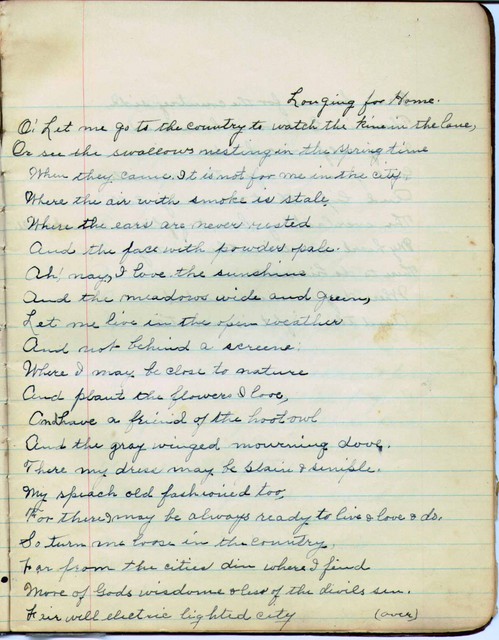 Longing for Home.
O! Let me go to the country to watch the kine in the lane,
Or see the swallows nesting in the spring time
When they came. It is not for me in the city
Where the air with smoke is stale,
Where the ears are never rested
And the face with powder pale.
Ah! nay, I love the sunshine
And the meadows wide and green,
Let me live in the open weather
And not behind a screene.
Where I may be close to nature
And plant the flowers I love,
And have a friend of the hoot owl
And the gray winged mourning dove.
There my dress may be plain & simple.
My speach old fashioned too,
For there I may be always ready to live & love & do.
So turn me loose in the country,
Far from the cities din where I find
More of Gods wisdome & less of the devils sin.
Fair will electric lighted city (over)